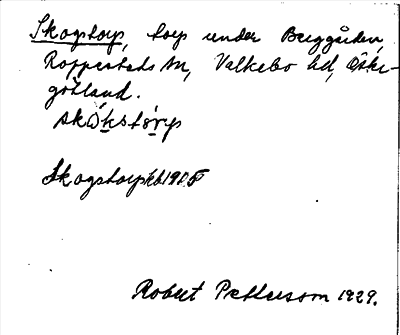 Skogstorp, torp under Berggården,
Rappestads sn, Valkebo hd, Öster-
götland.
skókstòrp
Skogstorp kb 1905
Robert Pettersson 1929.